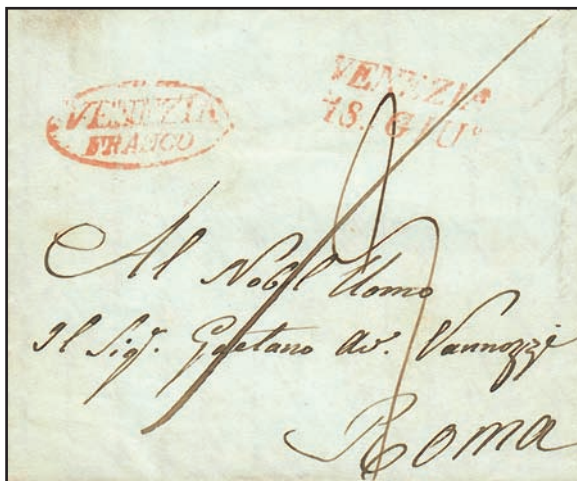 VENEZIA
FRANCO
VENEZIA
18. GIU°
Al Nobil Uomo
Il Sigr. Gaetano Av. Vannozzi
Roma